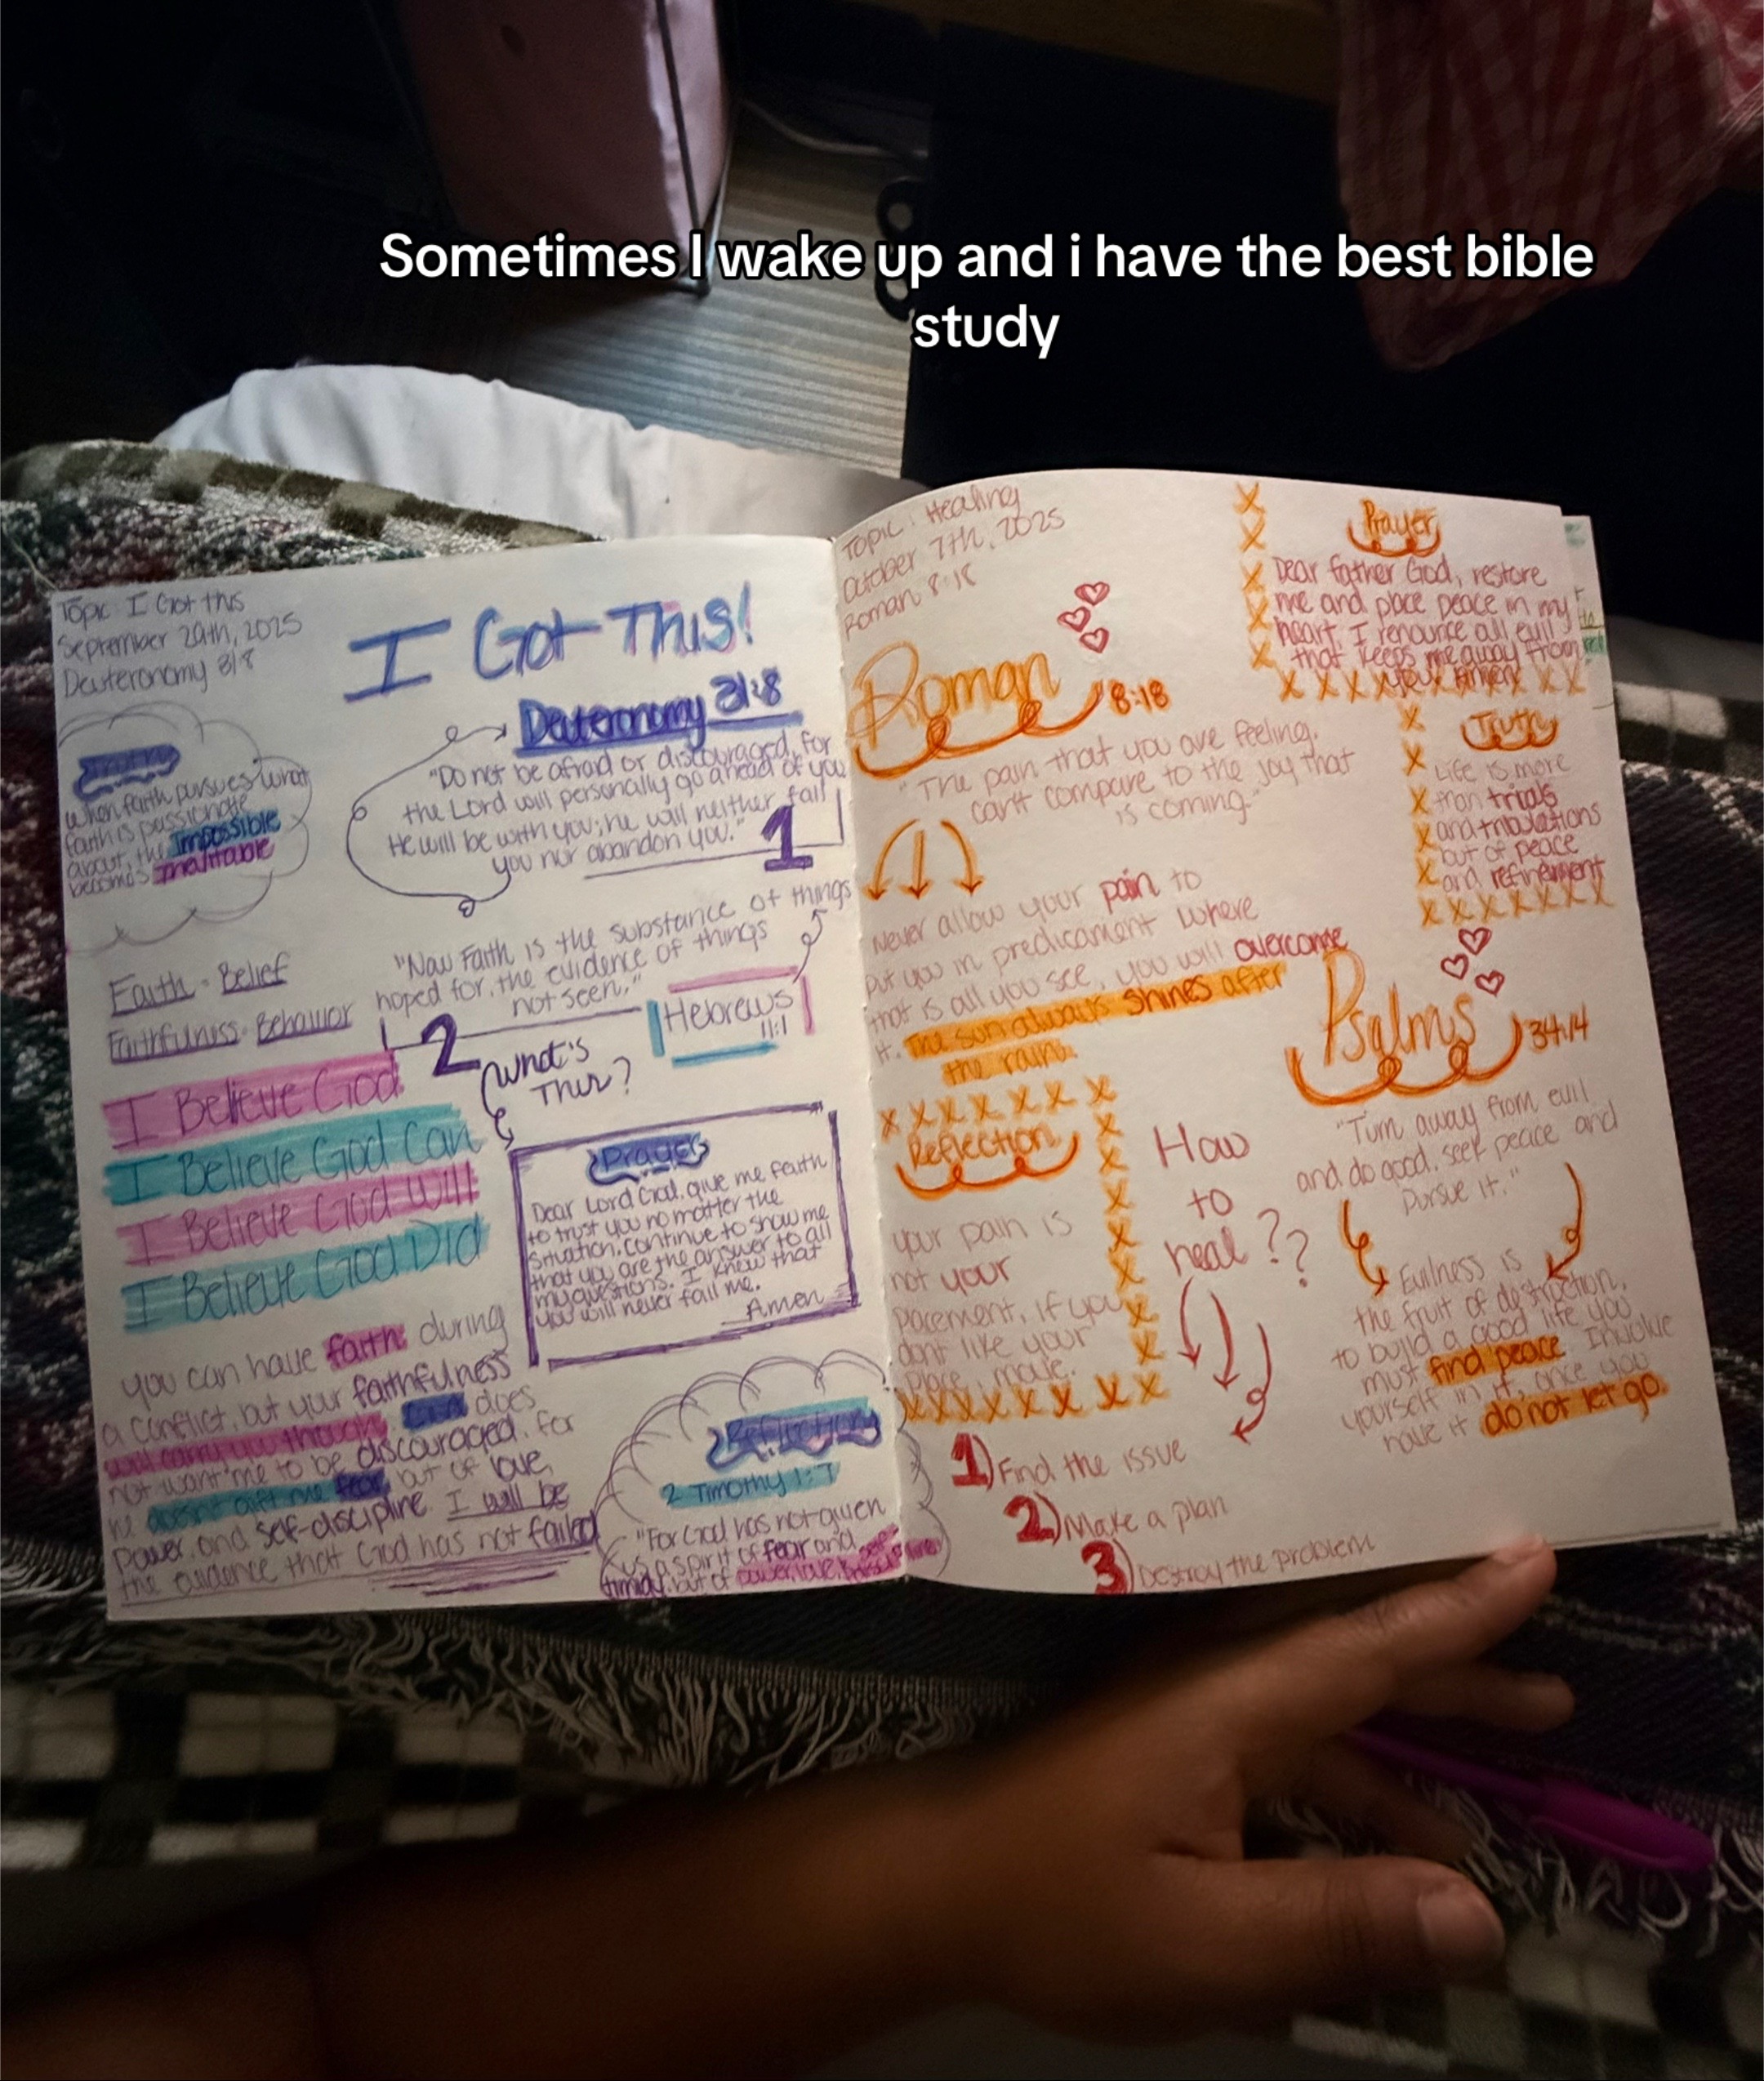 Sometimes I wake up and i have the best bible
study
Topic: I Got this
September 29th, 2025
Deuteronomy 31:8
I Got This!
Deuteronomy 31:8
"Do not be afraid or discouraged, for
the Lord will personally go ahead of you
He will be with you; he will neither fail
you nor abandon you."
1
when faith pursues what
faith is passionate
about, the Impossible
becomes
"Now Faith is the substance of things
hoped for, the evidence of things
not seen."
Hebrews
11:1
2
Faith - Belief
Faithfulness - Behavior
What's
This?
I Believe God
I Believe God Can
I Believe God Will
I Believe God Did
Prayer
Dear Lord God, give me faith
to trust you no matter the
situation. Continue to show me
that you are the answer to all
my questions. I know that
you will never fail me.
Amen
you can have faith during
a conflict, but your faithfulness
will carry you through. God does
not want me to be discouraged, for
he doesn't gift me fear, but of love,
power, and self-discipline. I will be
the evidence that God has not failed
Reflection
2 Timothy 1:7
"For God has not given
us a spirit of fear and
timidy, but of power, love,
Topic: Healing
October 7th, 2025
Roman 8:18
Roman 8:18
"The pain that you are feeling,
can't compare to the joy that
is coming."
Never allow your pain to
put you in predicament where
that is all you see, you will overcome
it. The sun always shines after
the rain.
Prayer
Dear father God, restore
me and place peace in my
heart. I renounce all evil
that keeps me away from
you. Amen
Truth
Life is more
than trials
and tribulations
but of peace
and refinement
Psalms 34:14
"Turn away from evil
and do good, seek peace and
Pursue it."
Evilness is
the fruit of destruction,
to build a good life you
must find peace. Involve
yourself in it, once you
have it do not let go.
Reflection
your pain is
not your
placement, if you
dont like your
place, move.
How
to
heal??
1) Find the issue
2) Make a plan
3) Destroy the problem